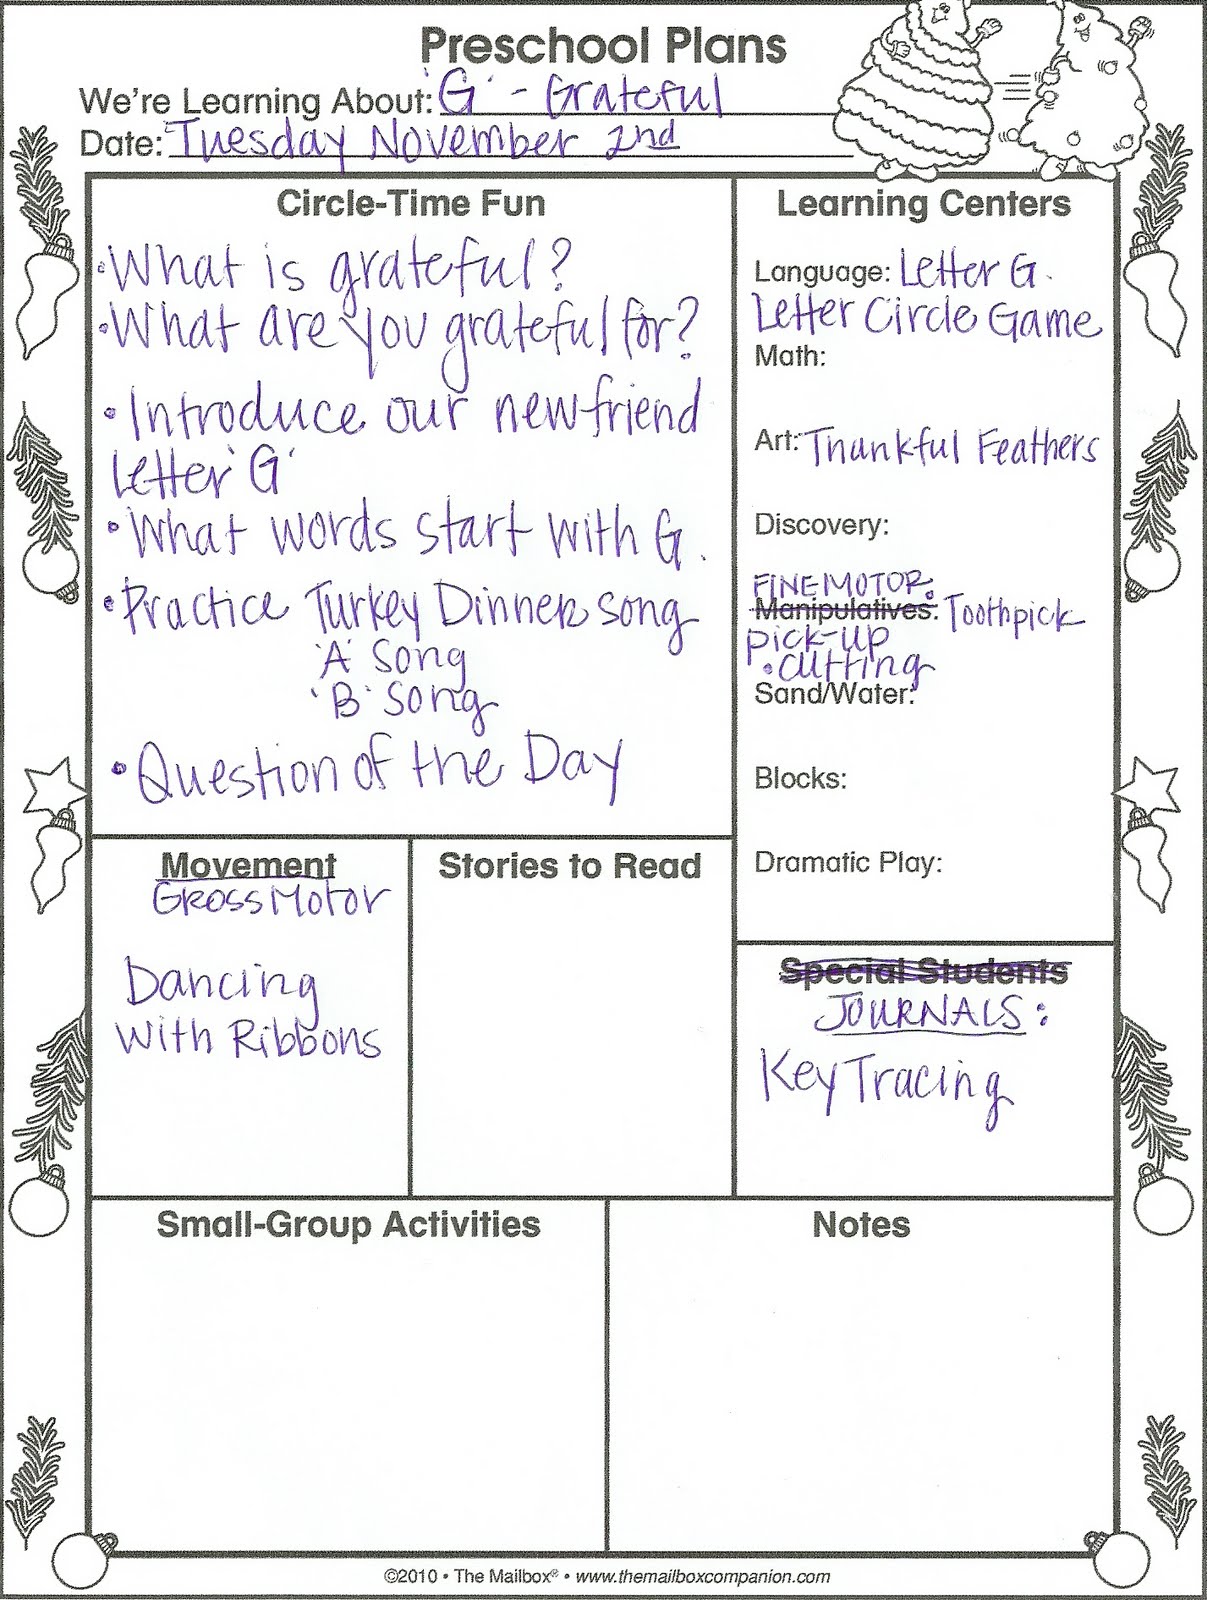 Preschool Plans
We're Learning About: 'G' - Grateful
Date: Tuesday November 2nd
Circle-Time Fun
• What is grateful?
• What are you grateful for?
• Introduce our new friend
letter 'G'
• What words start with G.
• Practice Turkey Dinner song
'A' song
'B' song
• Question of the Day
Learning Centers
Language: Letter G.
Letter Circle Game
Math:
Art: Thankful Feathers
Discovery:
FINE MOTOR:
Manipulatives: Toothpick
pick-up
• cutting
Sand/Water:
Blocks:
Dramatic Play:
Movement
Gross Motor
Dancing
With Ribbons
Stories to Read
Special Students
JOURNALS:
Key Tracing
Small-Group Activities
Notes
©2010 • The Mailbox® • www.themailboxcompanion.com